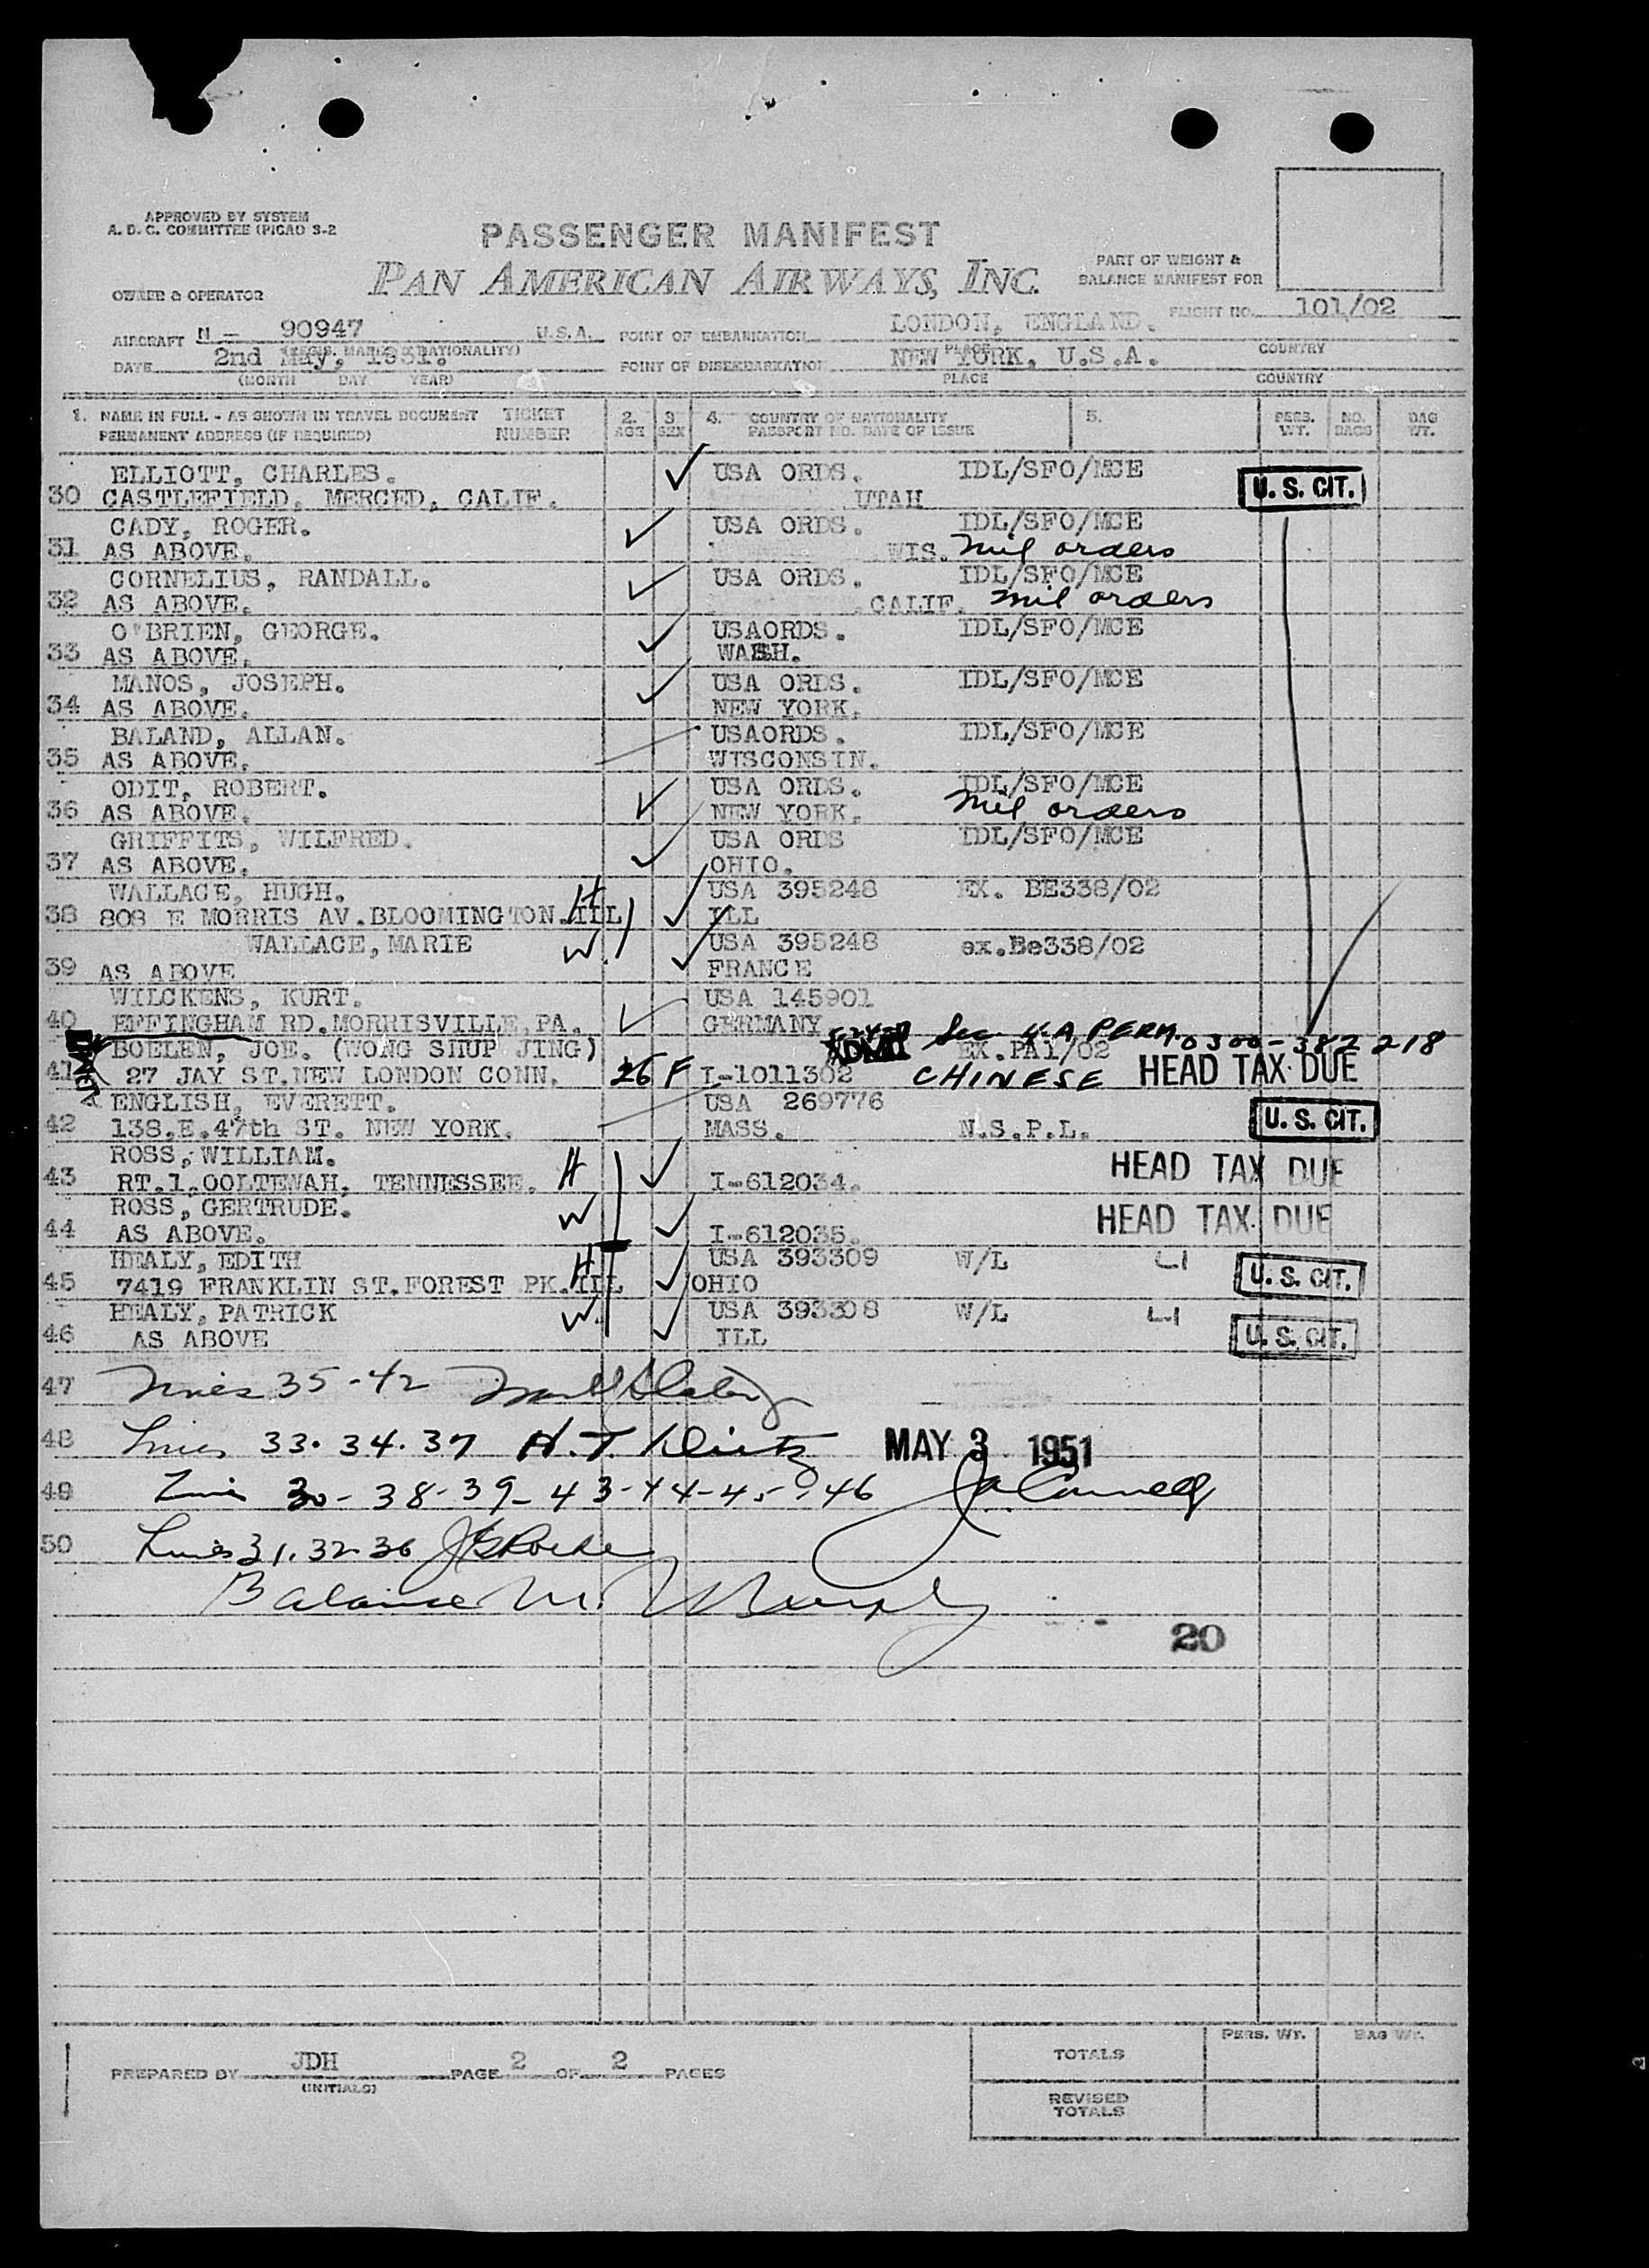 APPROVED BY SYSTEM
A. D. C. COMMITTEE (PICAO) S-2
PASSENGER MANIFEST
PAN AMERICAN AIRWAYS, INC.
PART OF WEIGHT &
BALANCE MANIFEST FOR
OWNER & OPERATOR
FLIGHT NO. 101/02
AIRCRAFT N - 90947 U.S.A. POINT OF EMBARKATION LONDON, ENGLAND.
(REGIS. MARK & NATIONALITY) PLACE COUNTRY
DATE 2nd May, 1951. POINT OF DISEMBARKATION NEW YORK, U.S.A.
(MONTH DAY YEAR) PLACE COUNTRY
1. NAME IN FULL - AS SHOWN IN TRAVEL DOCUMENT TICKET 2. 3 4. COUNTRY OF NATIONALITY 5. PERS. NO. BAG
PERMANENT ADDRESS (IF REQUIRED) NUMBER AGE SEX PASSPORT NO. DATE OF ISSUE WT. BAGS WT.
ELLIOTT, CHARLES. USA ORDS. IDL/SFO/MCE
30 CASTLEFIELD, MERCED, CALIF. UTAH U. S. CIT.
CADY, ROGER. USA ORDS. IDL/SFO/MCE
31 AS ABOVE. WIS. Mil orders
CORNELIUS, RANDALL. USA ORDS. IDL/SFO/MCE
32 AS ABOVE. CALIF. Mil orders
O'BRIEN, GEORGE. USAORDS. IDL/SFO/MCE
33 AS ABOVE. WASH.
MANOS, JOSEPH. USA ORDS. IDL/SFO/MCE
34 AS ABOVE. NEW YORK.
BALAND, ALLAN. USAORDS. IDL/SFO/MCE
35 AS ABOVE. WISCONSIN.
ODIT, ROBERT. USA ORDS. IDL/SFO/MCE
36 AS ABOVE. NEW YORK. Mil orders
GRIFFITS, WILFRED. USA ORDS IDL/SFO/MCE
37 AS ABOVE. OHIO.
WALLACE, HUGH. H USA 395248 EX. BE338/02
38 808 E MORRIS AV.BLOOMINGTON.ILL ILL
WALLACE, MARIE W. USA 395248 ex.Be338/02
39 AS ABOVE FRANCE
WILCKENS, KURT. USA 145901
40 EFFINGHAM RD.MORRISVILLE,PA. GERMANY
BOELEN, JOE. (WONG SHUP JING) ADMD EX.PA1/02 Sec 4.A PERM. 0300-382218
41 27 JAY ST.NEW LONDON CONN. 26 F I-1011302 CHINESE HEAD TAX DUE
ENGLISH, EVERETT. USA 269776
42 138.E.47th ST. NEW YORK. MASS. N.S.P.L. U. S. CIT.
ROSS, WILLIAM. H
43 RT.1.OOLTEWAH, TENNESSEE. I-612034. HEAD TAX DUE
ROSS, GERTRUDE. W
44 AS ABOVE. I-612035. HEAD TAX DUE
HEALY, EDITH H USA 393309 W/L
45 7419 FRANKLIN ST.FOREST PK.ILL OHIO U. S. CIT.
HEALY, PATRICK W. USA 393308 W/L
46 AS ABOVE ILL U. S. CIT.
47 Lines 35-42
48 Lines 33. 34. 37 H.T. MAY 3 1951
49 Line 30 - 38-39-43-44-45-46
50 Lines 31. 32. 36
Balance M. Murphy
20
PREPARED BY JDH PAGE 2 OF 2 PAGES
(INITIALS)
PERS. WT. BAG WT.
TOTALS
REVISED
TOTALS
2